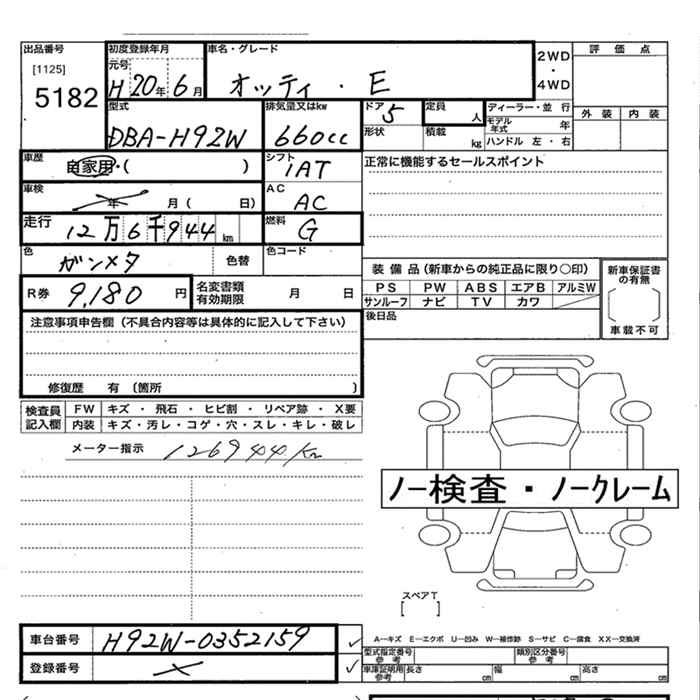 出品番号 初度登録年月 車名・グレード 評価点
[1125] 元号 2WD
5182 H20年6月 オッティ・E ・
4WD
型式 排気量又はkw ドア 定員 ディーラー・並 行 外装 内装
DBA-H92W 660cc 5 人 モデル年式 年
形状 積載 kg ハンドル 左・右
車歴 自家用・( ) シフト 1AT 正常に機能するセールスポイント
車検 年 月( 日) AC AC
走行 12万6千944km 燃料 G
色 ガンメタ 色替 色コード
装備品(新車からの純正品に限り○印) 新車保証書の有無
R券 9,180円 名変書類有効期限 月 日 PS PW ABS エアB アルミW
サンルーフ ナビ TV カワ
注意事項申告欄(不具合内容等は具体的に記入して下さい) 後日品 車載不可
修復歴 有 (箇所 )
検査員記入欄 FW キズ・飛石・ヒビ割・リペア跡・X要
内装 キズ・汚レ・コゲ・穴・スレ・キレ・破レ
メーター指示 126944km
ノー検査・ノークレーム
スペアT
[ ]
車台番号 H92W-0352159 A…キズ E…エクボ U…凹み W…補修跡 S…サビ C…腐食 XX…交換済
型式指定番号参考 類別区分番号参考
登録番号 車庫証明用参考 長さ cm 幅 cm 高さ cm